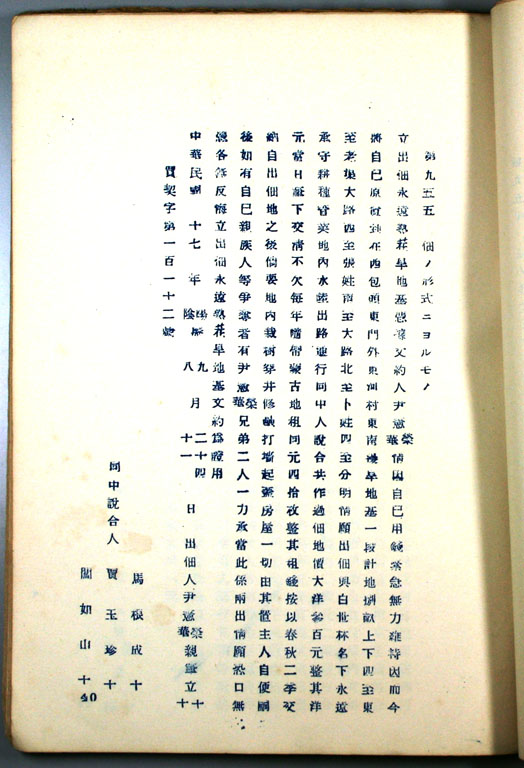 第九五五　佃ノ形式ニヨルモノ
立出佃永遠熟荘旱地基憑據文約人尹憲榮華情因自已用錢緊急無力維持因而今
將自已原置到在西包頭東門外東河村東南邊旱地基一段計地捌畝上下四至東
至老渠大路西至張姓南至大路北至卜姓四至分明情願出佃與白世杯名下永遠
承守耕種管業地內水護出路通行同中人說合共作過佃地價大洋參百元整其洋
元當日親下交清不欠每年嘴備蒙古地租同元四拾枚整其租錢按以春秋二季交
納自出佃地之後倘要地內栽樹穿井修鹻打墻起蓋房屋一切由其置主人自便嗣
後如有自已親族人等爭奪者有尹憲榮華兄弟二人一力承當此係兩出情願恐口無
憑各無反悔立出佃永遠熟荘旱地基文約為證用
中華民國　十七　年　陽陰曆　九八　月　二十四十一　日　出佃人尹憲榮華親筆立十十
買契字第一百一十二號
同中說合人　馬根成十
賈玉珍十
關如山十
40